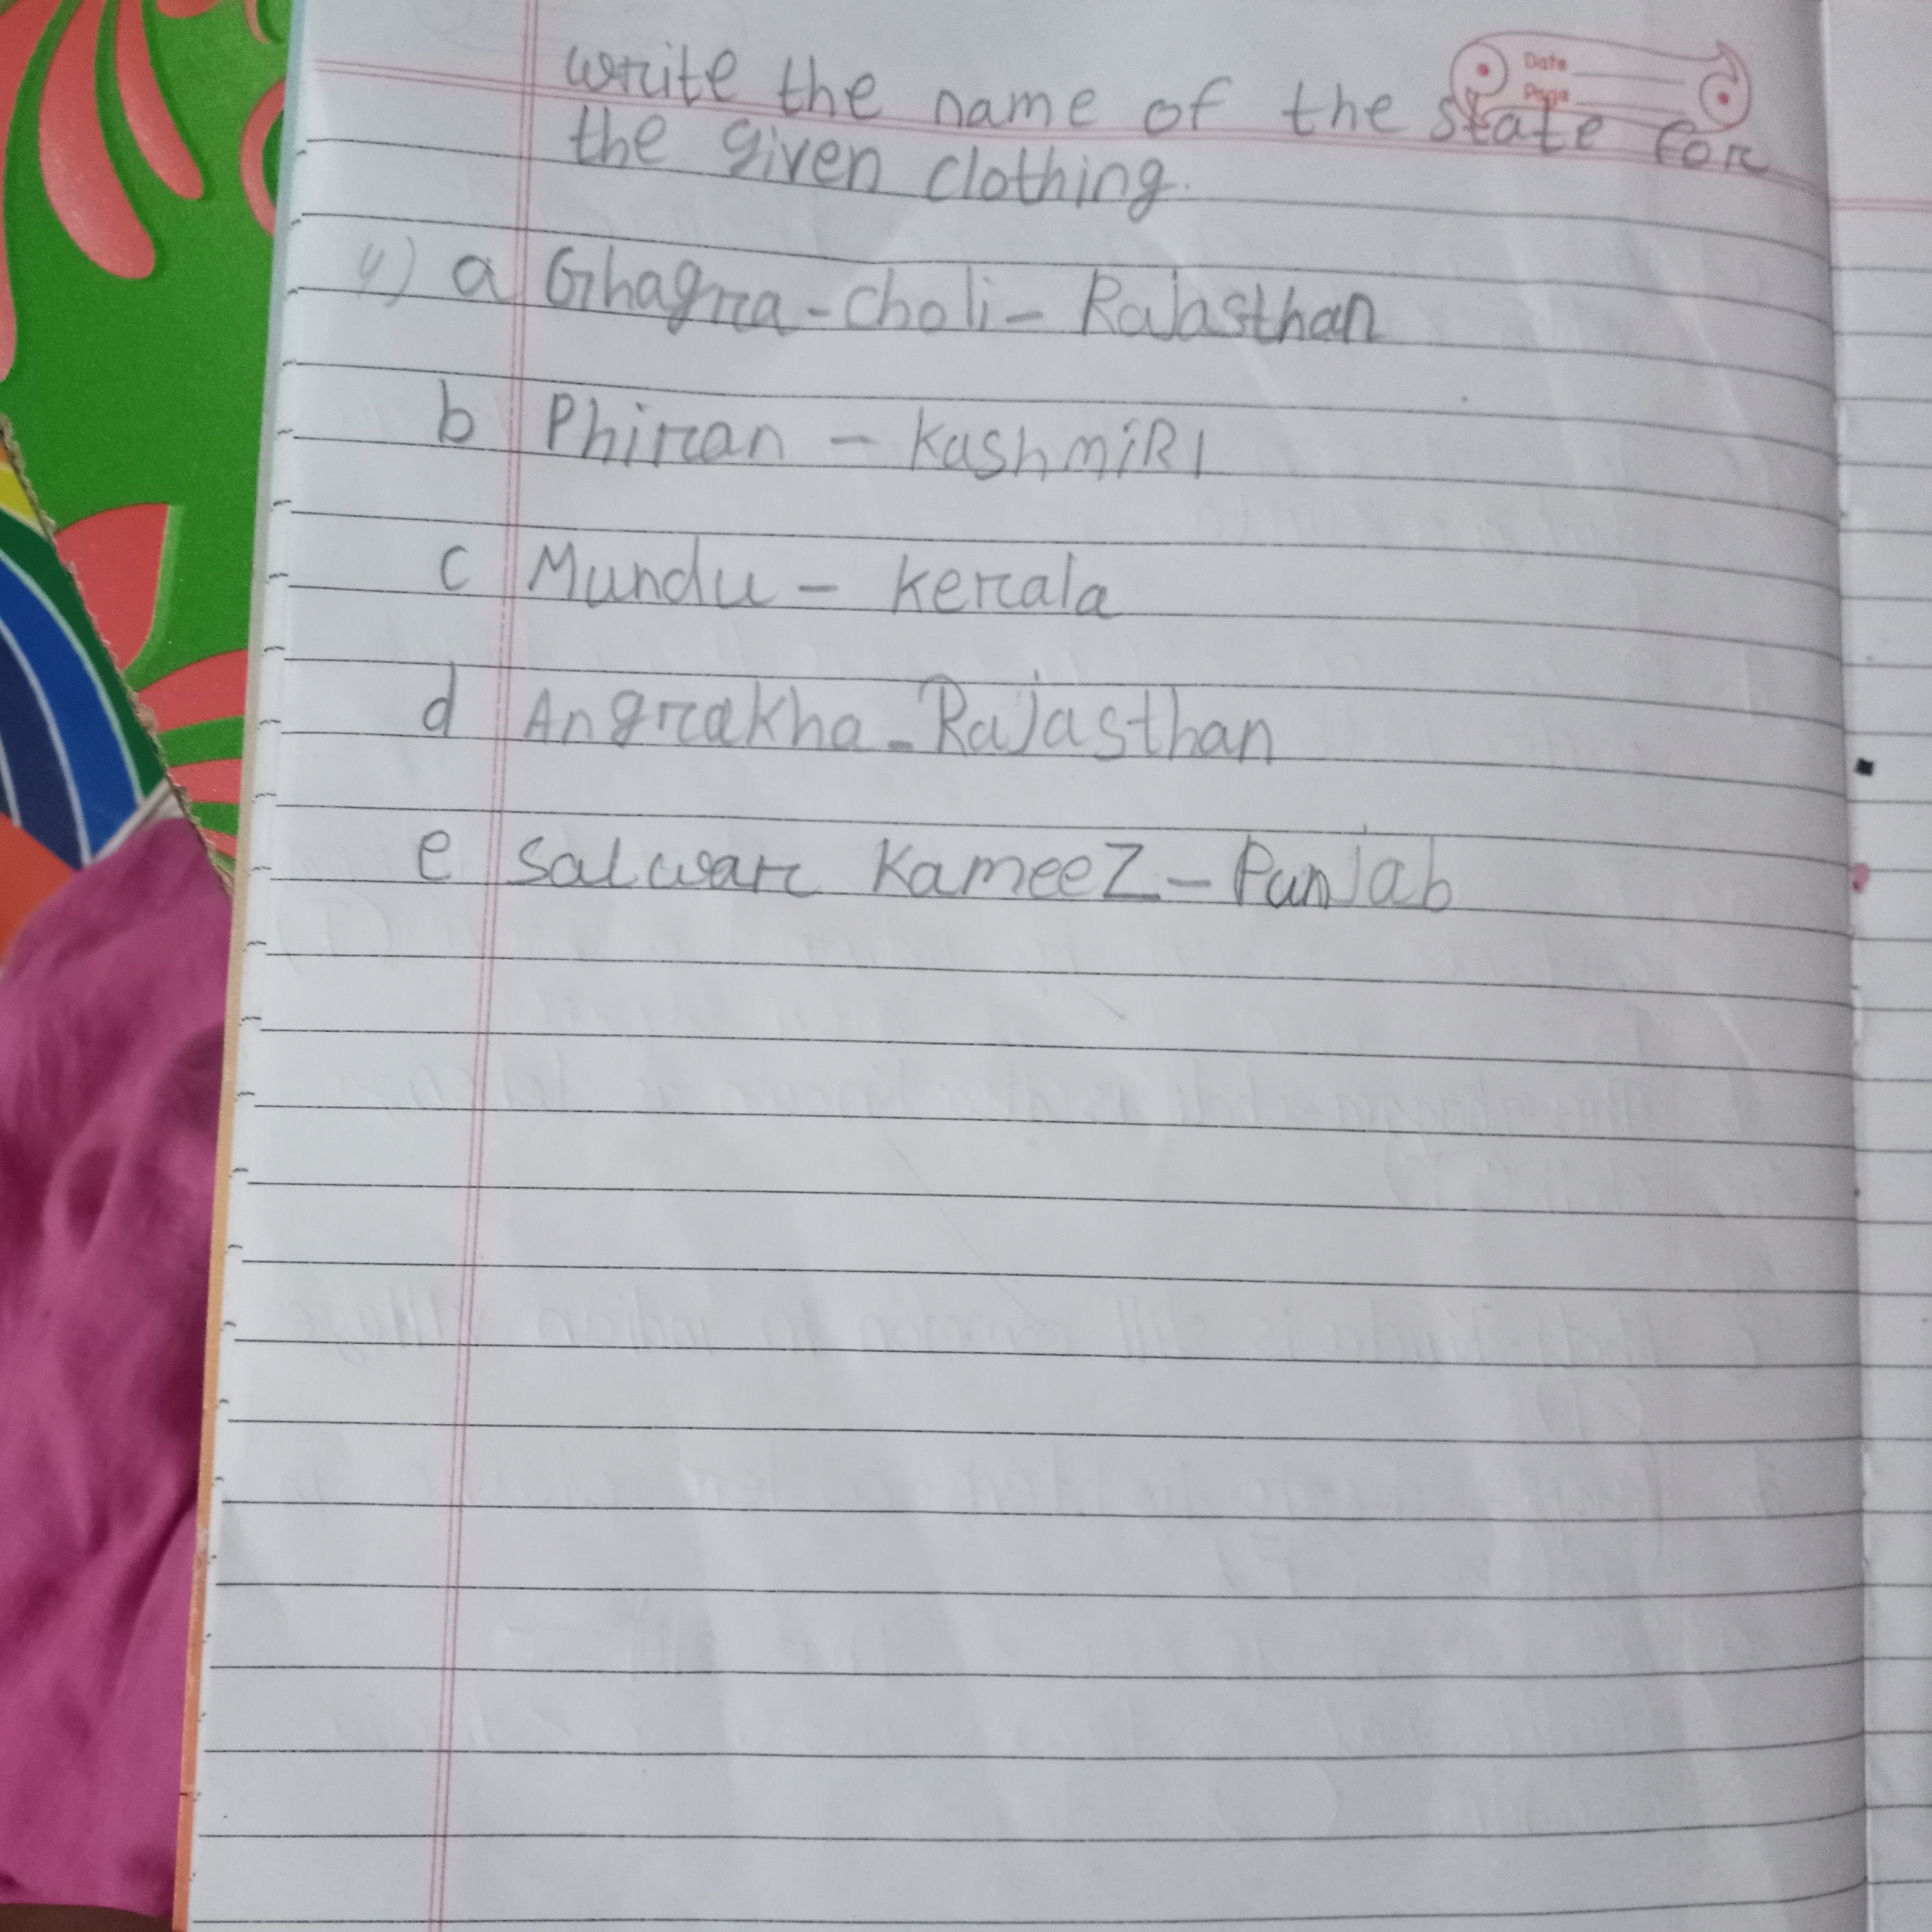 Date
Page
write the name of the state for
the given clothing.
4) a Ghagra-choli- Rajasthan
b Phiran - KashmiRI
c Mundu - kerala
d Angrakha - Rajasthan
e salwar KameeZ - Punjab